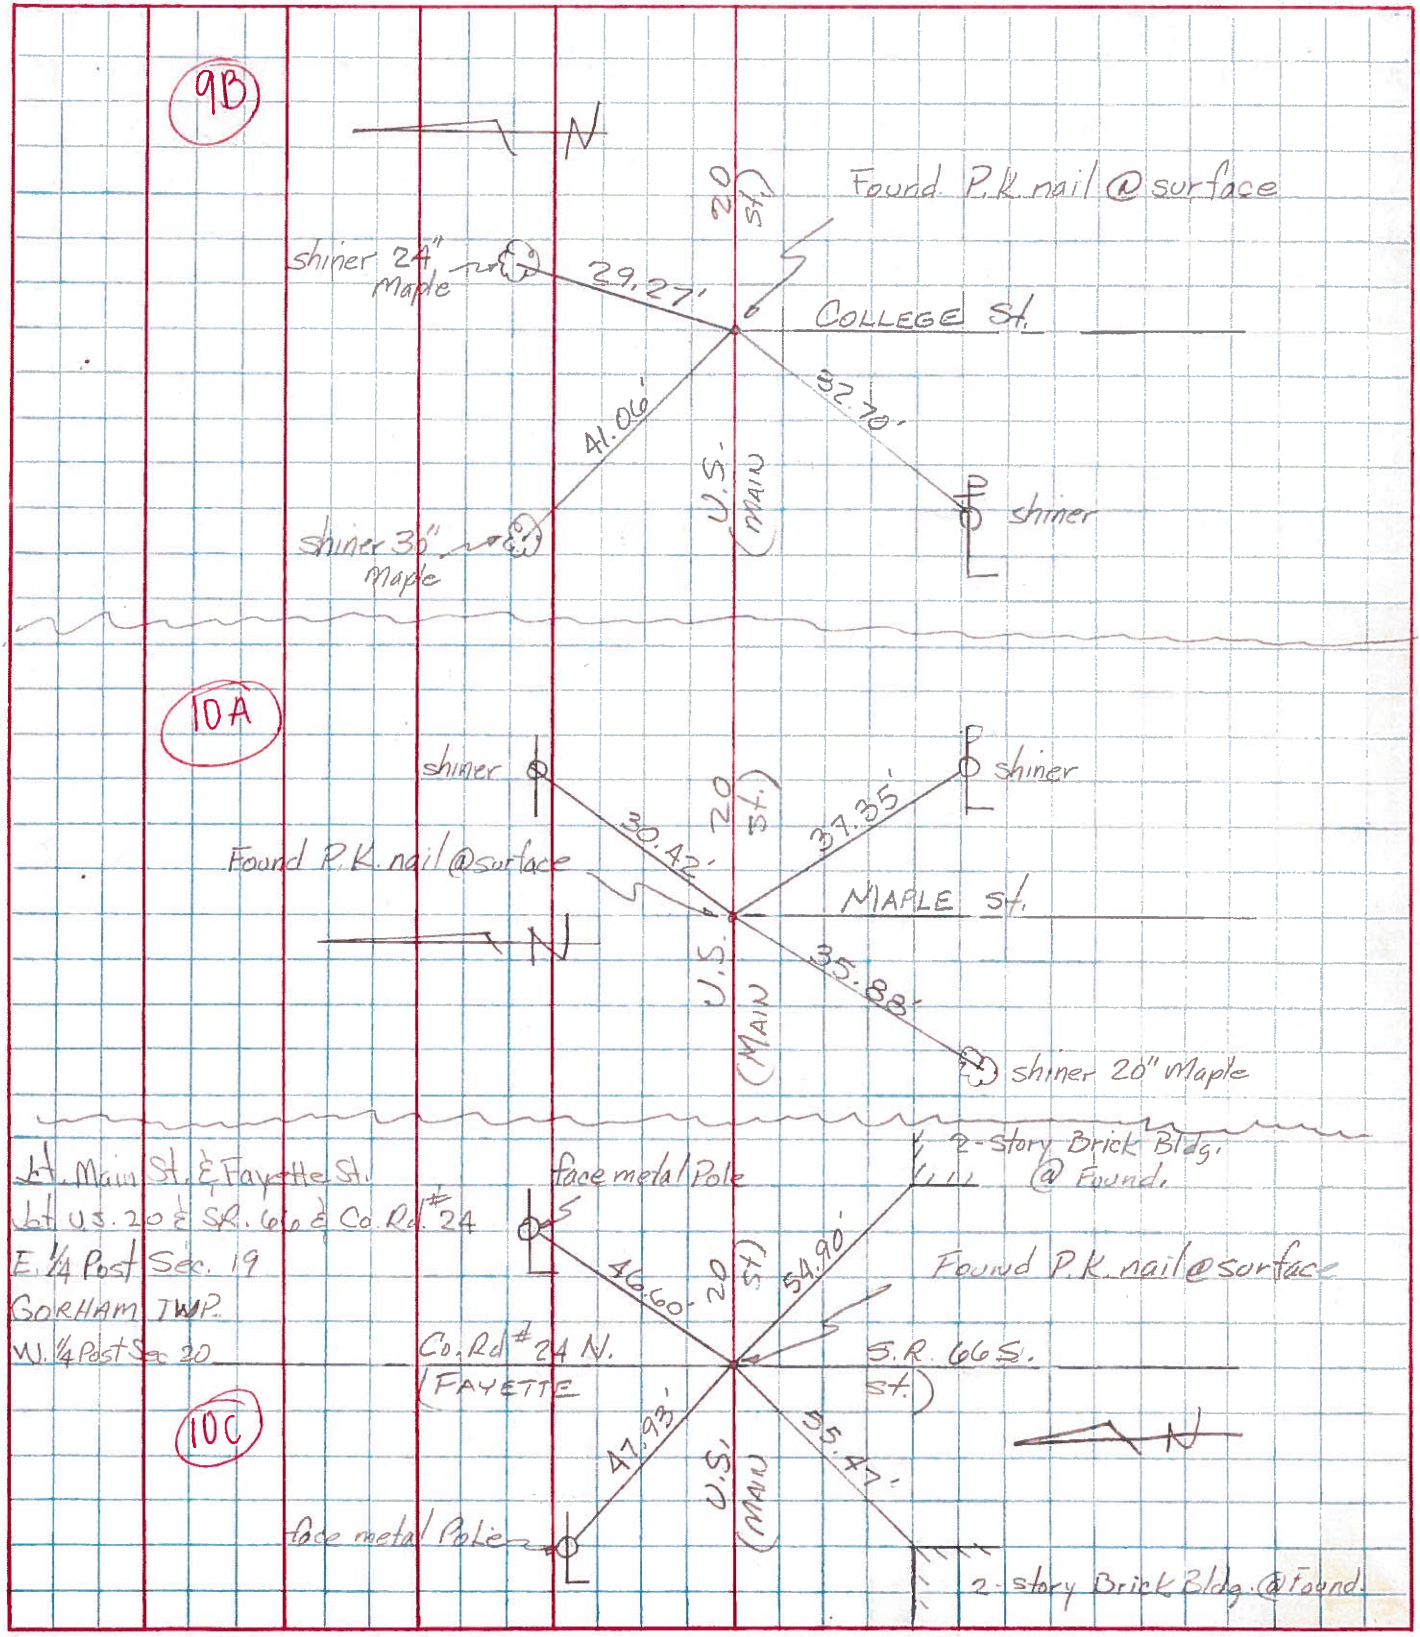 9B
N
Found P.K. nail @ surface
20
St.)
shiner 24"
Maple
29.27'
COLLEGE St.
32.70'
41.06'
U.S.
(MAIN
shiner
shiner 30"
Maple
10A
shiner
20
St.)
shiner
30.42'
37.35'
Found P.K. nail @ surface
MAPLE St.
N
U.S.
(MAIN
35.88'
shiner 20" Maple
Jct. Main St. & Fayette St.
Jct U.S. 20 & S.R. 66 & Co. Rd. #24
E. 1/4 Post Sec. 19
GORHAM TWP.
W. 1/4 Post Sec 20
face metal Pole
2-story Brick Bldg.
@ Found.
46.60'
20
St)
54.90'
Found P.K. nail @ surface
Co. Rd #24 N.
(FAYETTE
S.R. 66 S.
St.)
10C
47.93'
U.S.
(MAIN
55.47'
N
face metal Pole
2-story Brick Bldg. @ Found.